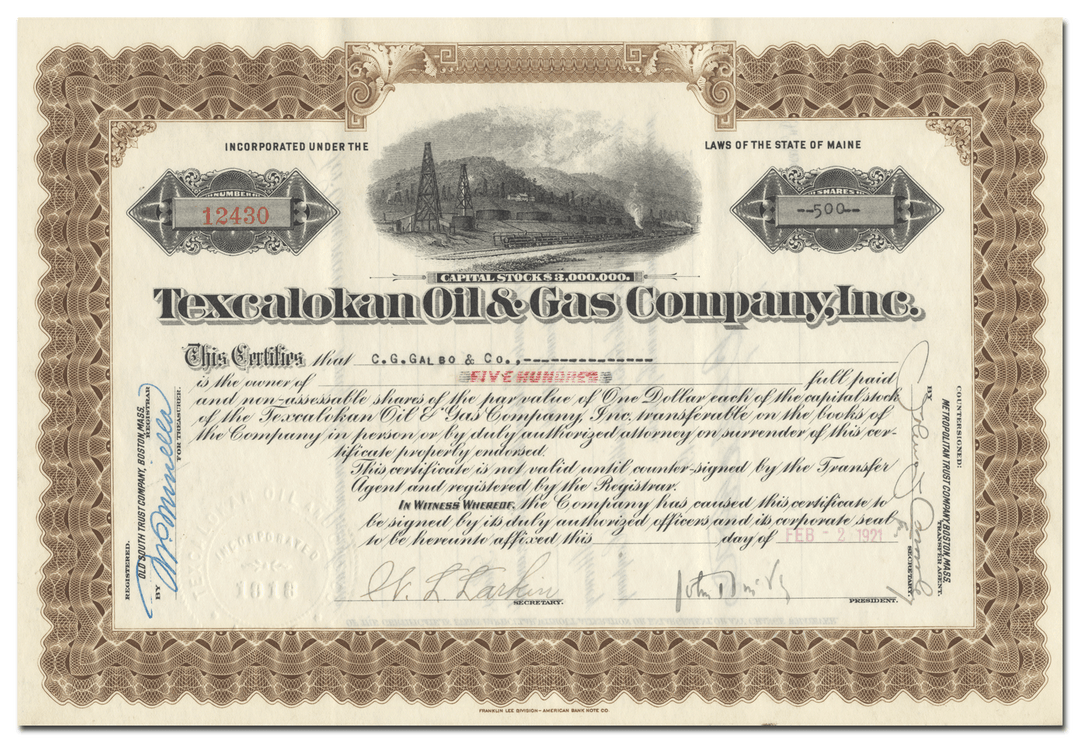 INCORPORATED UNDER THE LAWS OF THE STATE OF MAINE
NUMBER
12430
SHARES
--500--
CAPITAL STOCK $3,000,000.
Texcalokan Oil & Gas Company, Inc.
This Certifies that C.G.GALBO & CO.,----------------
is the owner of FIVE HUNDRED full paid
and non-assessable shares of the par value of One Dollar each of the capital stock
of the Texcalokan Oil & Gas Company, Inc. transferable on the books of
the Company in person or by duly authorized attorney on surrender of this cer-
tificate properly endorsed.
This certificate is not valid until counter-signed by the Transfer
Agent and registered by the Registrar.
IN WITNESS WHEREOF, the Company has caused this certificate to
be signed by its duly authorized officers and its corporate seal
to be hereunto affixed this day of FEB - 2 1921
W. L. Larkin
SECRETARY.
John
PRESIDENT.
REGISTERED.
OLD SOUTH TRUST COMPANY, BOSTON, MASS.
REGISTRAR
BY
FOR TREASURER.
COUNTERSIGNED:
METROPOLITAN TRUST COMPANY, BOSTON, MASS.
TRANSFER AGENT.
BY
SECRETARY.
INCORPORATED
1918
FRANKLIN LEE DIVISION - AMERICAN BANK NOTE CO.